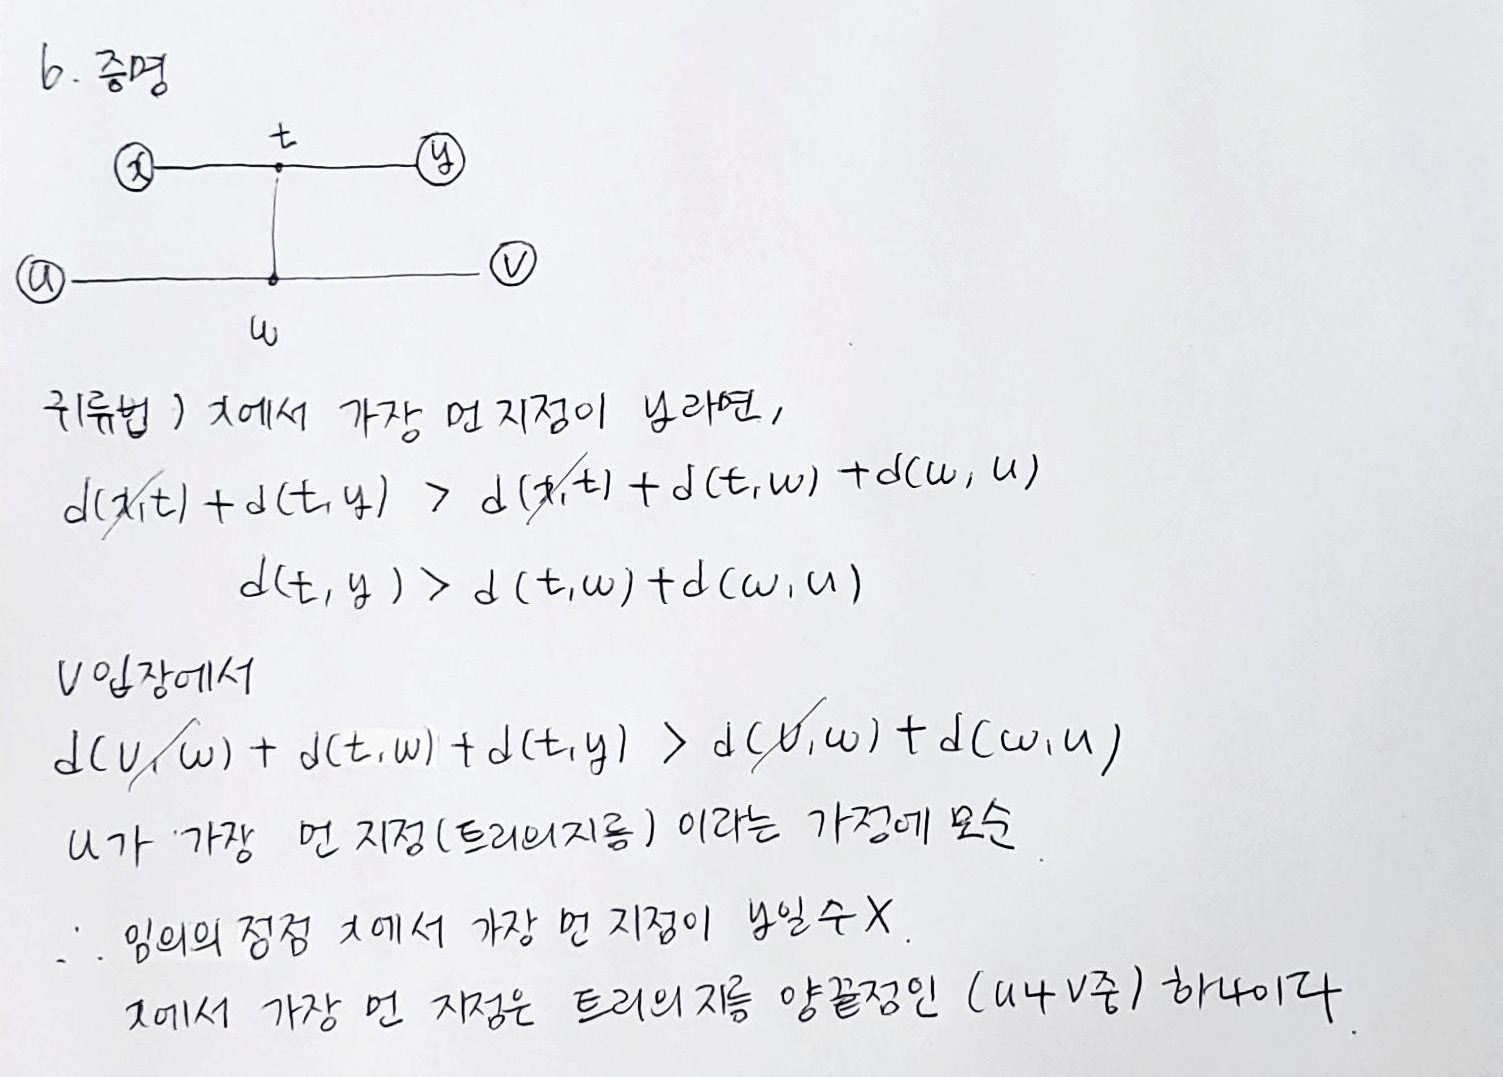 6. 증명
t
x y
u v
w
귀류법) x에서 가장 먼 지점이 y라면,
d(x,t) + d(t,y) > d(x,t) + d(t,w) + d(w,u)
d(t,y) > d(t,w) + d(w,u)
v입장에서
d(v,w) + d(t,w) + d(t,y) > d(v,w) + d(w,u)
u가 가장 먼 지점(트리의지름)이라는 가정에 모순.
∴ 임의의 정점 x에서 가장 먼 지점이 y일수X.
x에서 가장 먼 지점은 트리의 지름 양끝점인 (u나 v중) 하나이다.